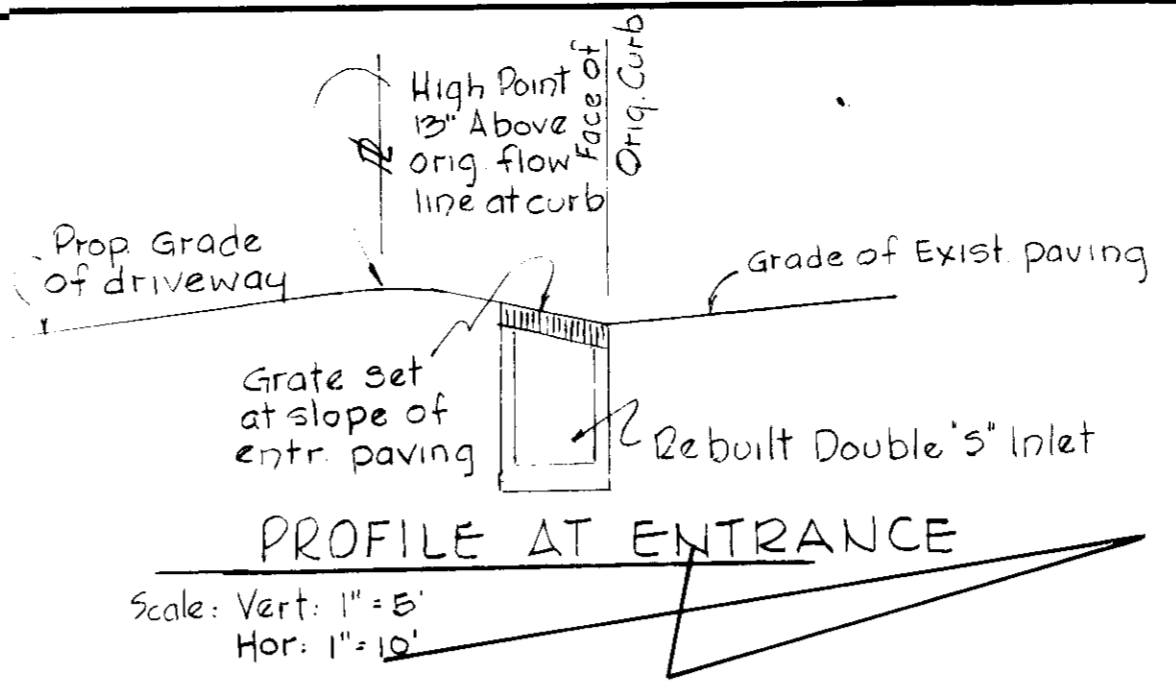 High Point
13" Above
orig. flow
line at curb
Face of
Orig. Curb
Prop. Grade
of driveway
Grade of Exist. paving
Grate set
at slope of
entr. paving
Rebuilt Double "S" Inlet
PROFILE AT ENTRANCE
Scale: Vert: 1" = 5'
Hor: 1" = 10'